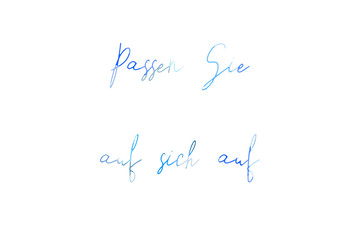 Passen Sie
auf sich auf